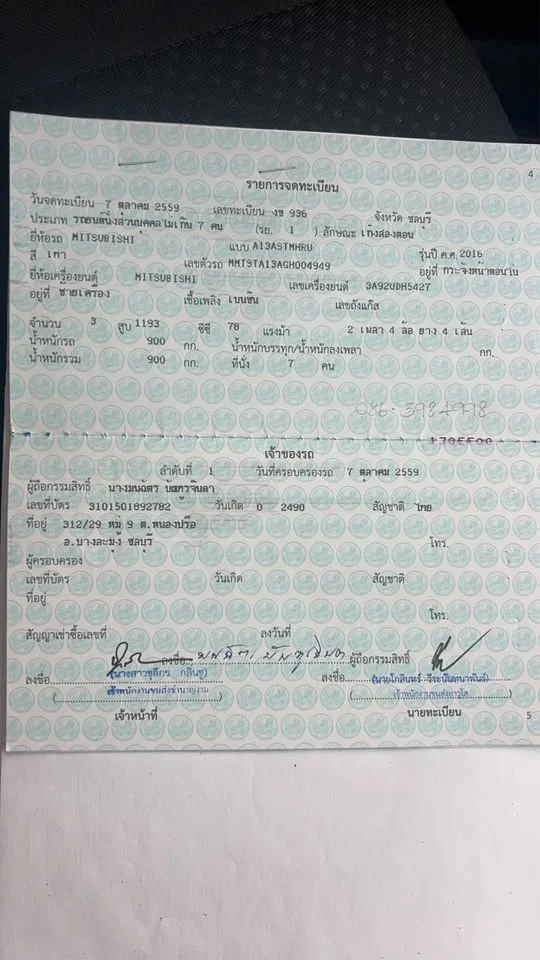 4
รายการจดทะเบียน
วันจดทะเบียน 7 ตุลาคม 2559 เลขทะเบียน งช 936 จังหวัด ชลบุรี
ประเภท รถยนต์นั่งส่วนบุคคลไม่เกิน 7 คน (รย. 1 ) ลักษณะ เก๋งสองตอน
ยี่ห้อรถ MITSUBISHI แบบ A13ASTMHRU รุ่นปี ค.ศ. 2016
สี เทา เลขตัวรถ MMTSTA13AGH004949 อยู่ที่ กระจังหน้าตอนใน
ยี่ห้อเครื่องยนต์ MITSUBISHI เลขเครื่องยนต์ 3A92UDH5427
อยู่ที่ ซ้ายเครื่อง เชื้อเพลิง เบนซิน เลขถังแก๊ส
จำนวน 3 สูบ 1193 ซีซี 78 แรงม้า 2 เพลา 4 ล้อ ยาง 4 เส้น
น้ำหนักรถ 900 กก. น้ำหนักบรรทุก/น้ำหนักลงเพลา กก.
น้ำหนักรวม 900 กก. ที่นั่ง 7 คน
086-3984998
เจ้าของรถ
ลำดับที่ 1 วันที่ครอบครองรถ 7 ตุลาคม 2559
ผู้ถือกรรมสิทธิ์
เลขที่บัตร 3101501692782 วันเกิด 0 2490 สัญชาติ ไทย
ที่อยู่ 312/29 หมู่ 9 ต.หนองปรือ
อ.บางละมุง ชลบุรี โทร.
ผู้ครอบครอง
เลขที่บัตร วันเกิด สัญชาติ
ที่อยู่
โทร.
สัญญาเช่าซื้อเลขที่ ลงวันที่
ลงชื่อ ผู้ถือกรรมสิทธิ์
ลงชื่อ ลงชื่อ
เจ้าพนักงานขนส่งชำนาญงาน
เจ้าหน้าที่ นายทะเบียน
5